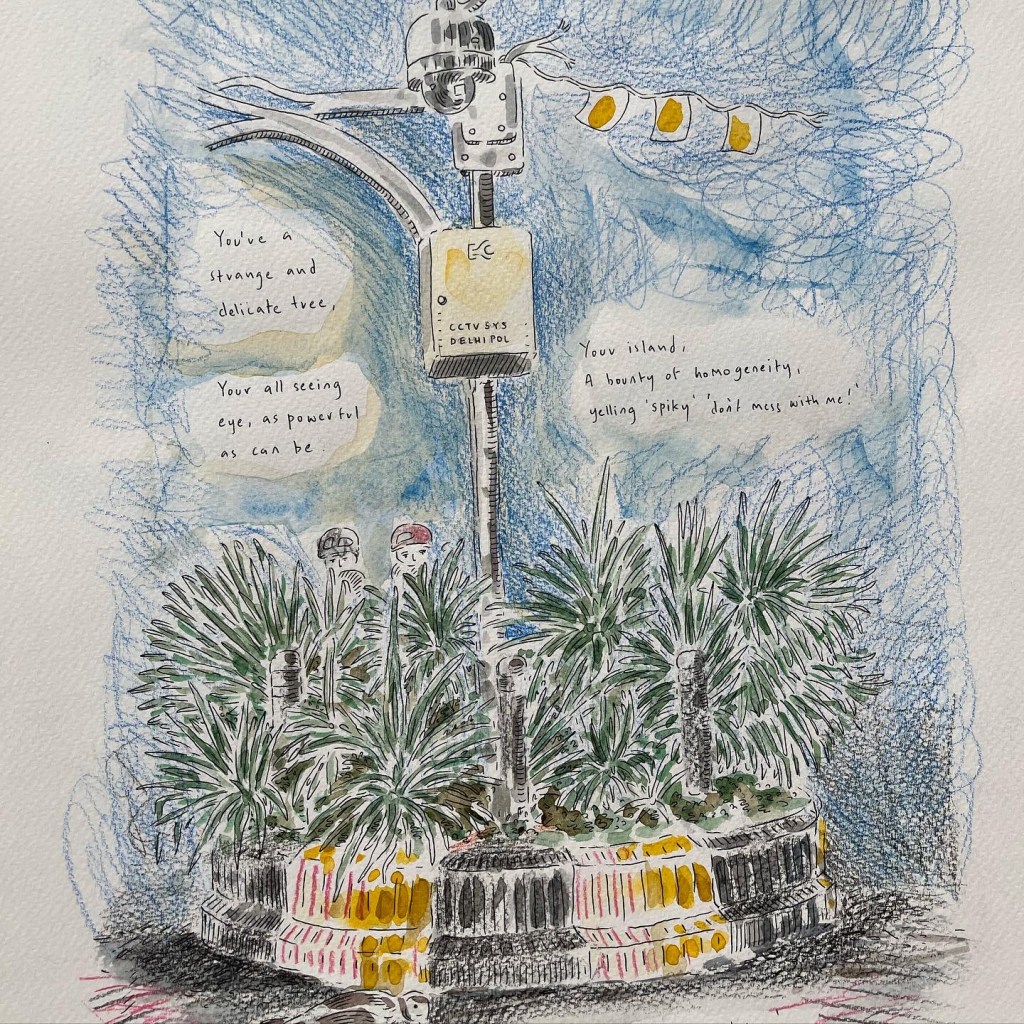 You've a
strange and
delicate tree,
Your all seeing
eye, as powerful
as can be.
ESC
CCTV SYS
DELHI POL
Your island,
A bounty of homogeneity,
yelling 'spiky' 'don't mess with me!'